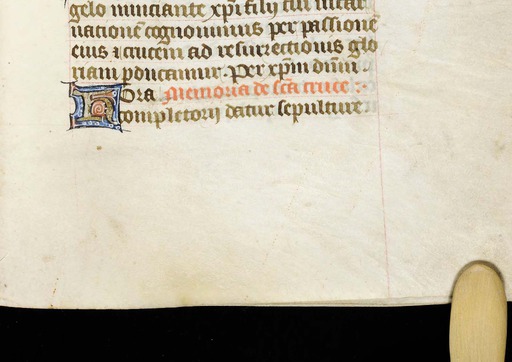 gelo nunciante xp̄i filij tui incar
nationē cognouimus per passionē
eius ⁊ crucem ad resurrectionis glo
riam ꝑducamur. Per xp̄m dnm̄
Hora Memoria de scā cruce :·
completorij datur sepulture